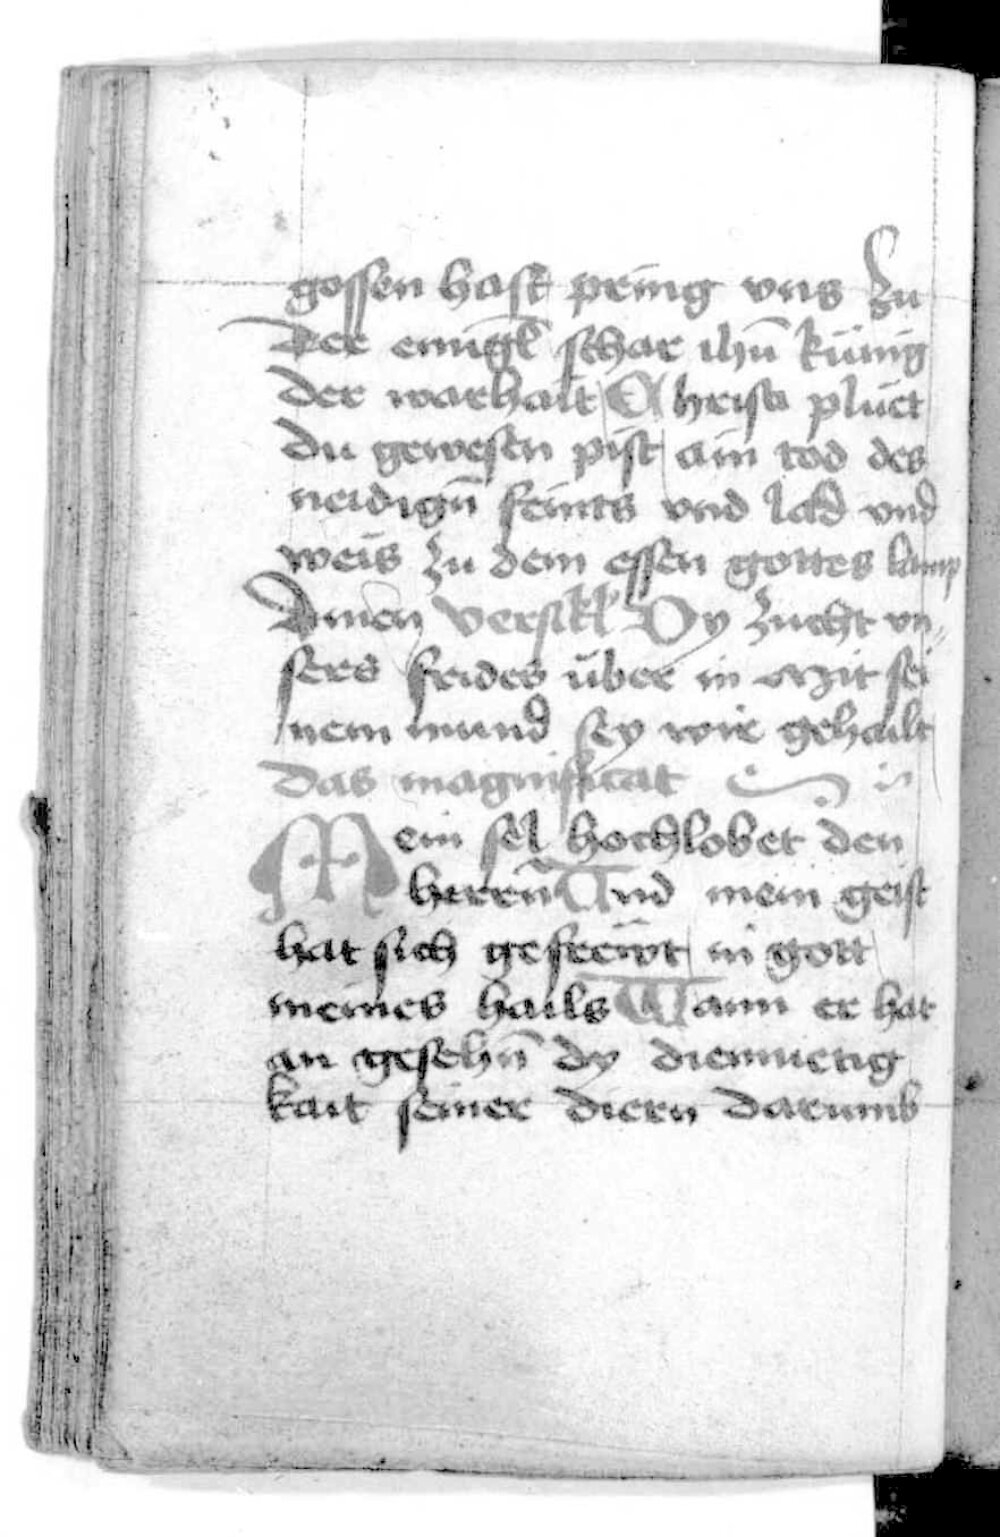 gossen hast pring vns zu
der ewigk schar ihū künig
der warhait Christi pluet
du gewesen pist ain tod des
neidigñ feints vnd lad vnd
weis zu dem essen gottes lamp
Amen versikl Dy zucht vn„
sers frides über in mit sei
nem mund sey wir gehailt
das magnificat
Mein sel hochlobet den
herrñ Und mein geist
hat sich gefreẅt in gott
meines hails Wann er hat
an gesehñ dy diemuetig
kait seiner diern darumb